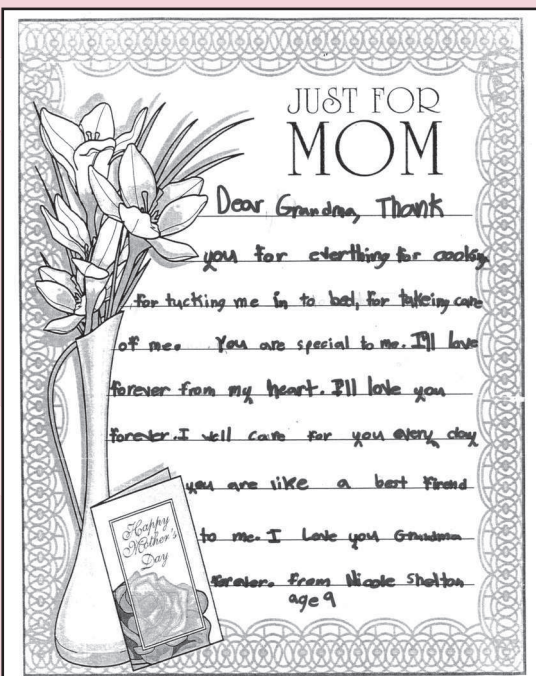 JUST FOR
MOM
Dear Grandma, Thank
you for everthing for cooking
for tucking me in to bed, for takeing care
of me. You are special to me. I'll love
forever from my heart. I'll love you
forever. I will care for you every day
you are like a best firend
to me. I Love you Grandma
forever. from Nicole Shelton
age 9
Happy
Mother's
Day